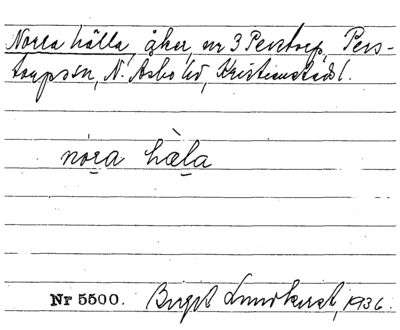 Norra hälla, åker, nr 3 Perstorp, Pers-
torps sn, N. Åsbo hd, Kristianstads l.
nǫra hæ̀la
Nr 5500. Birgit Lundkvist, 1936.